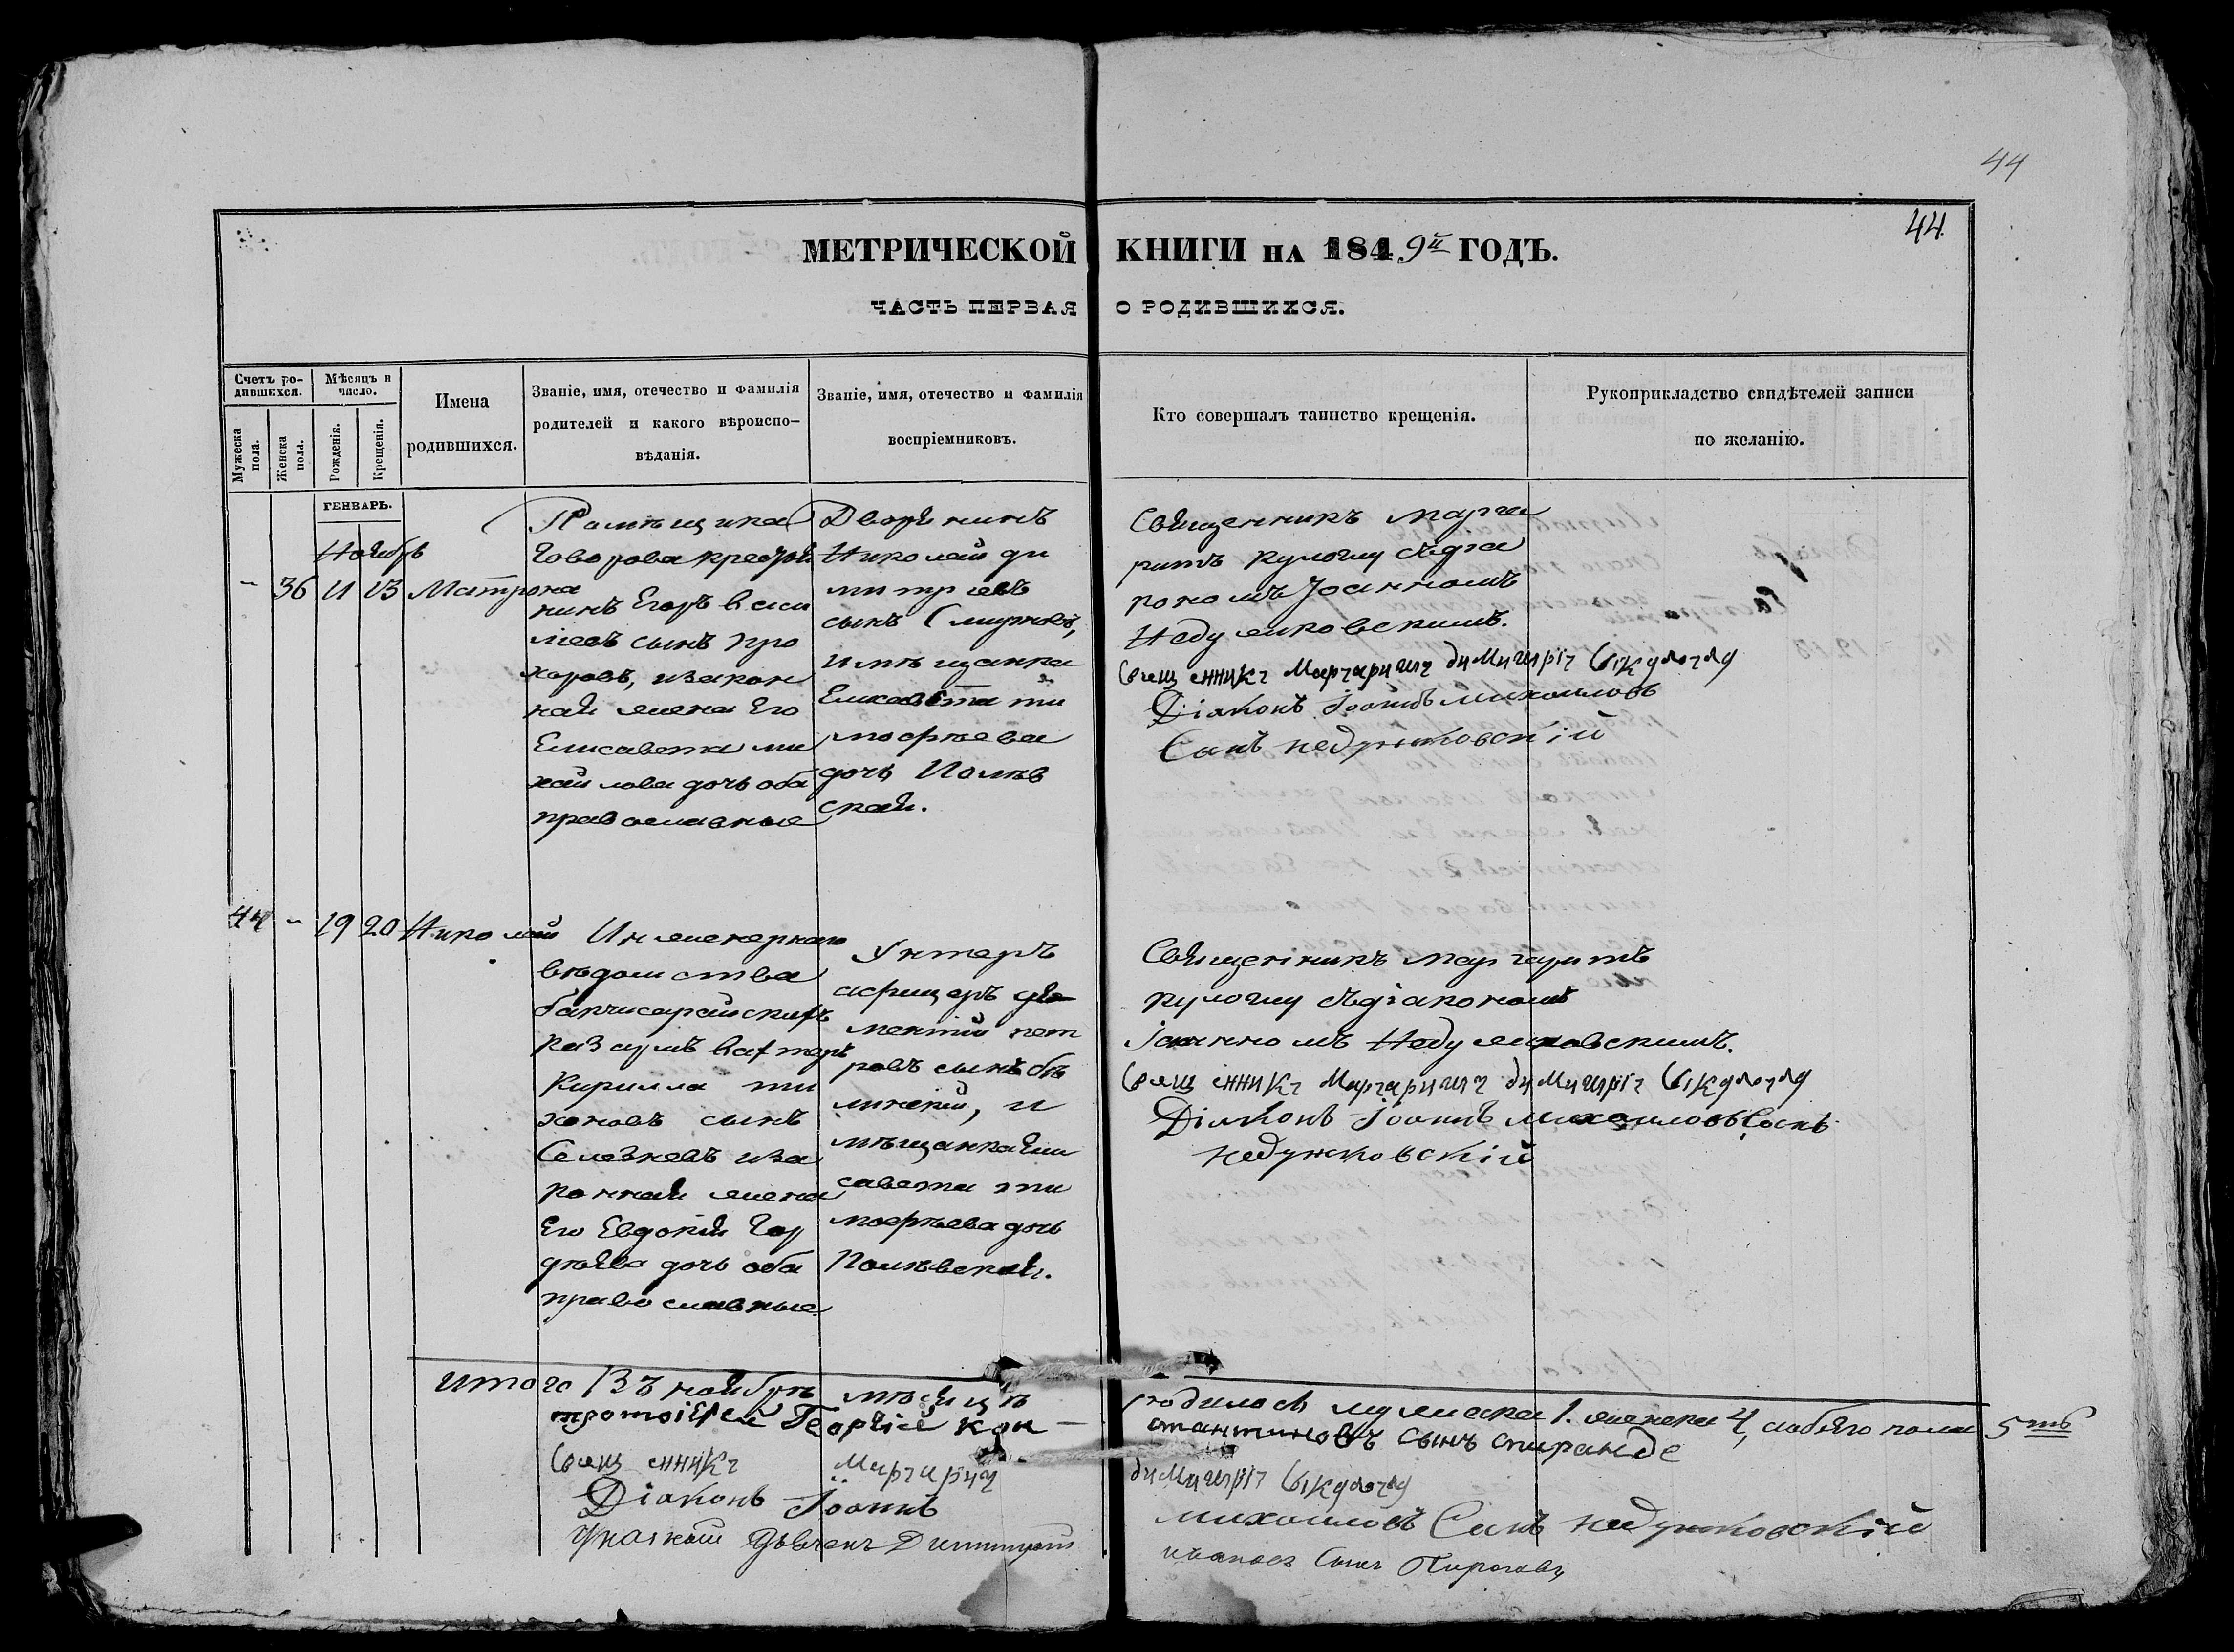 44
44.
МЕТРИЧЕСКОЙ КНИГИ на 1849й ГОДЪ.
ЧАСТЬ ПЕРВАЯ О РОДИВШИХСЯ.
Счетъ родившихся.
Мужеска пола.
Женска пола.
Мѣсяцъ и число.
Рожденія.
Крещенія.
Имена
родившихся.
Званіе, имя, отечество и фамилія
родителей и какого вѣроиспо-
вѣданія.
Званіе, имя, отечество и фамилія
воспріемниковъ.
Кто совершалъ таинство крещенія.
Рукоприкладство свидѣтелей записи
по желанію.
ГЕНВАРЬ.
Ноябрь
- 36 11 13 Матрона
Помѣщика
Говорова крестья
нинъ Егоръ васи
лiевъ сынъ про
хоровъ, изакон
ная жена Его
Елисавета ми
хайлова дочь оба
православные
Дворянинъ
Николай ди
митріевъ
сынъ Смирновъ,
имѣщанка
Елисавета ти
мофѣева
дочь Полѣв
ская.
Священникъ марга
ритъ кулоглу съдіа
кономъ Іоанномъ
Недумековскимъ.
Свещенникъ Маргаритъ димитріи Кулоглу
Діаконъ Іоаннъ михаиловъ
Сынъ недужковскій
44 - 19 20 Николай
Инженернаго
вѣдомства
бакчисарайскихъ
казармъ вахтеръ
Кирилла ти
хоновъ сынъ
Селезневъ иза
конная жена
Его Евдокія Гор
дѣева дочь оба
православные
Унтеръ
афицеръ
ментій пет
ровъ сынъ бѣ
линскій, и
мѣщанка Ели
савета ти
мофѣева дочь
Полѣвская.
Священникъ маргаритъ
кулоглу съдіакономъ
Іоанномъ Недумековскимъ.
Свещенникъ Маргаритъ димитріи Кулоглу
Діаконъ Іоаннъ михаиловъ Сынъ
недужковскій
итого Въ ноябрѣ мѣсяцѣ родилось мужеска 1. женска 4, иобѣго пола 5ть
протоіерей Георгій константиновъ сынъ спиранде
Свещенникъ Маргаритъ димитріи Кулоглу
Діаконъ Іоаннъ михаиловъ Сынъ недужковскій
Указной Дьячекъ Димитрій ивановъ Сынъ Пироговъ